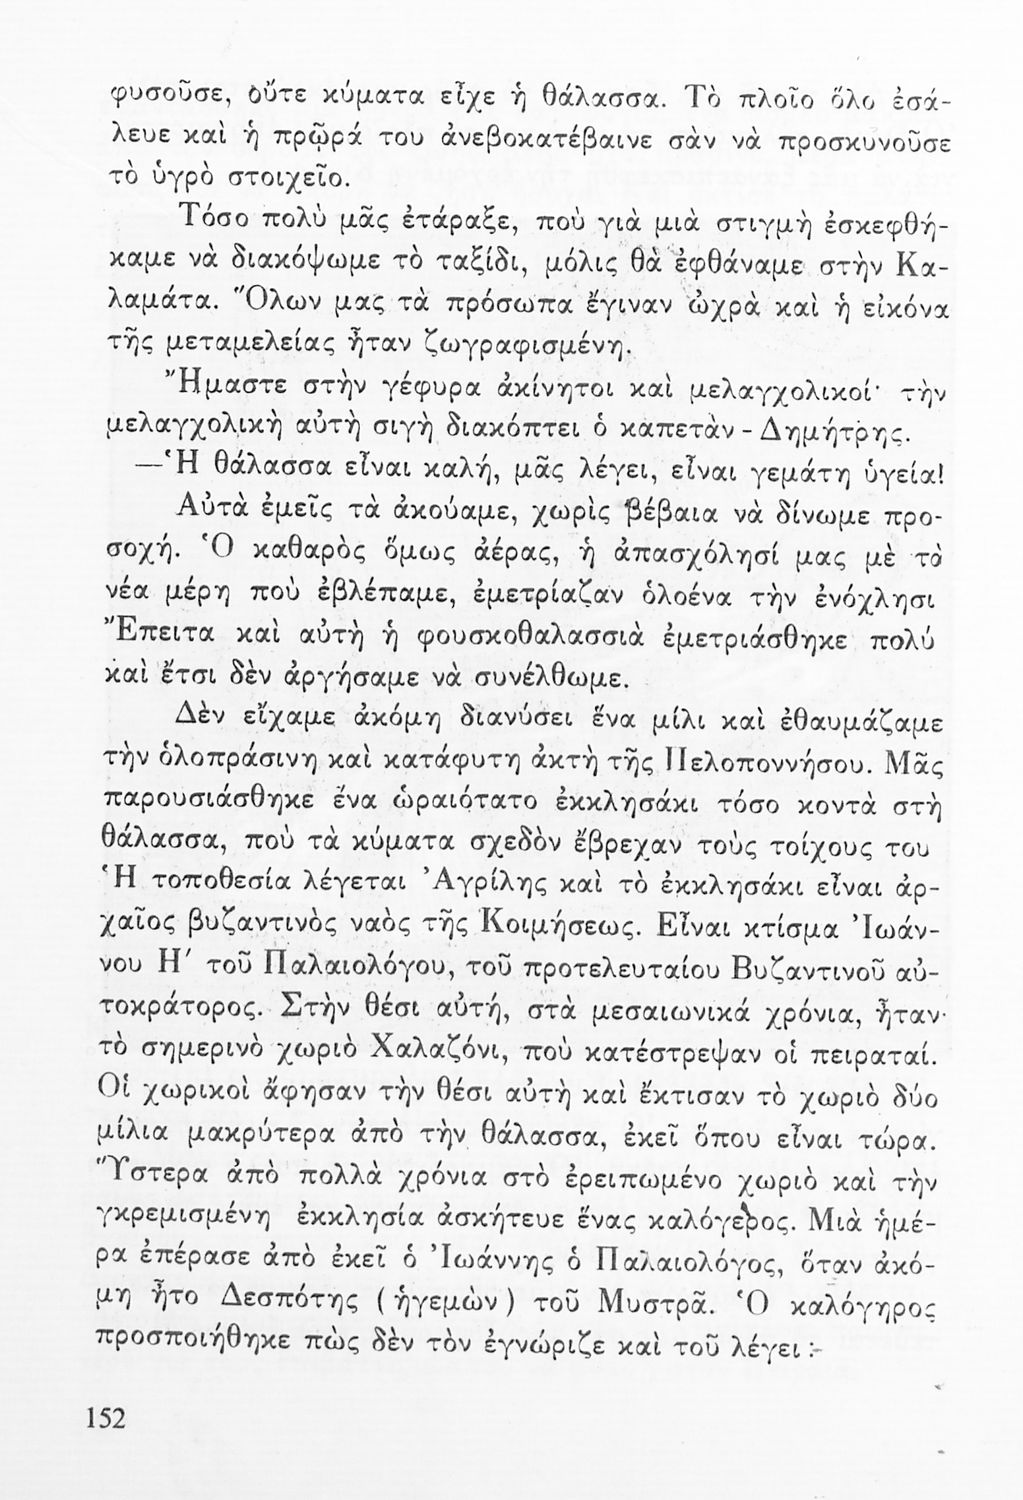 φυσοῦσε, οὔτε κύματα εἶχε ἡ θάλασσα. Τὸ πλοῖο ὅλο ἐσά-
λευε καὶ ἡ πρῷρά του ἀνεβοκατέβαινε σὰν νὰ προσκυνοῦσε
τὸ ὑγρὸ στοιχεῖο.
Τόσο πολὺ μᾶς ἐτάραξε, ποὺ γιὰ μιὰ στιγμὴ ἐσκεφθή-
καμε νὰ διακόψωμε τὸ ταξίδι, μόλις θὰ ἐφθάναμε στὴν Κα-
λαμάτα. Ὅλων μας τὰ πρόσωπα ἔγιναν ὠχρὰ καὶ ἡ εἰκόνα
τῆς μεταμελείας ἦταν ζωγραφισμένη.
Ἤμαστε στὴν γέφυρα ἀκίνητοι καὶ μελαγχολικοί· τὴν
μελαγχολικὴ αὐτὴ σιγὴ διακόπτει ὁ καπετὰν - Δημήτρης.
—Ἡ θάλασσα εἶναι καλή, μᾶς λέγει, εἶναι γεμάτη ὑγεία!
Αὐτὰ ἐμεῖς τὰ ἀκούαμε, χωρὶς βέβαια νὰ δίνωμε προ-
σοχή. Ὁ καθαρὸς ὅμως ἀέρας, ἡ ἀπασχόλησί μας μὲ τὰ
νέα μέρη ποὺ ἐβλέπαμε, ἐμετρίαζαν ὁλοένα τὴν ἐνόχλησι
Ἔπειτα καὶ αὐτὴ ἡ φουσκοθαλασσιὰ ἐμετριάσθηκε πολύ
καὶ ἔτσι δὲν ἀργήσαμε νὰ συνέλθωμε.
Δὲν εἴχαμε ἀκόμη διανύσει ἕνα μίλι καὶ ἐθαυμάζαμε
τὴν ὁλοπράσινη καὶ κατάφυτη ἀκτὴ τῆς Πελοποννήσου. Μᾶς
παρουσιάσθηκε ἕνα ὡραιότατο ἐκκλησάκι τόσο κοντὰ στὴ
θάλασσα, ποὺ τὰ κύματα σχεδὸν ἔβρεχαν τοὺς τοίχους του
Ἡ τοποθεσία λέγεται Ἀγρίλης καὶ τὸ ἐκκλησάκι εἶναι ἀρ-
χαῖος βυζαντινὸς ναὸς τῆς Κοιμήσεως. Εἶναι κτίσμα Ἰωάν-
νου Η' τοῦ Παλαιολόγου, τοῦ προτελευταίου Βυζαντινοῦ αὐ-
τοκράτορος. Στὴν θέσι αὐτή, στὰ μεσαιωνικά χρόνια, ἦταν
τὸ σημερινὸ χωριὸ Χαλαζόνι, ποὺ κατέστρεψαν οἱ πειραταί.
Οἱ χωρικοὶ ἄφησαν τὴν θέσι αὐτὴ καὶ ἔκτισαν τὸ χωριὸ δύο
μίλια μακρύτερα ἀπὸ τὴν θάλασσα, ἐκεῖ ὅπου εἶναι τώρα.
Ὕστερα ἀπὸ πολλὰ χρόνια στὸ ἐρειπωμένο χωριὸ καὶ τὴν
γκρεμισμένη ἐκκλησία ἀσκήτευε ἕνας καλόγερος. Μιὰ ἡμέ-
ρα ἐπέρασε ἀπὸ ἐκεῖ ὁ Ἰωάννης ὁ Παλαιολόγος, ὅταν ἀκό-
μη ἦτο Δεσπότης (ἡγεμὼν) τοῦ Μυστρᾶ. Ὁ καλόγηρος
προσποιήθηκε πὼς δὲν τὸν ἐγνώριζε καὶ τοῦ λέγει :-
152